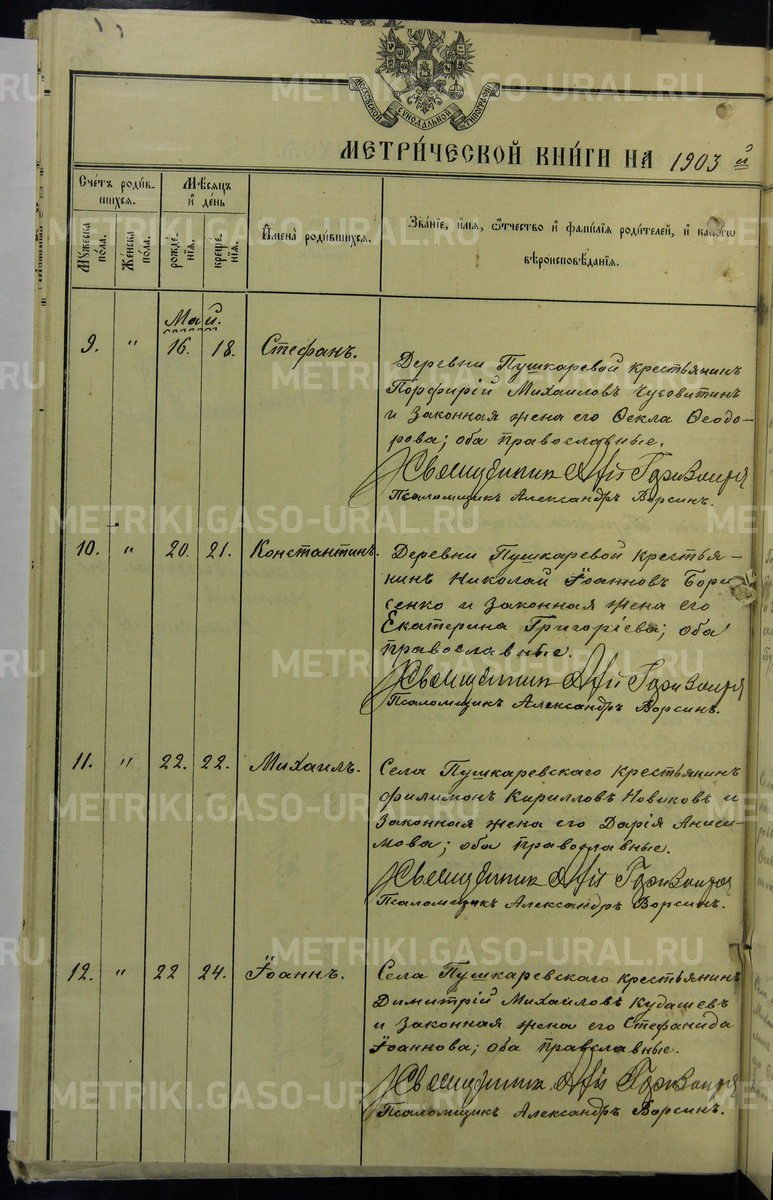 МОСКОВСКОЙ СѴНОДАЛЬНОЙ ТИПОГРАФІИ
МЕТРИ́ЧЕСКОЙ КНИ́ГИ НА 1903 й
Сче́тъ роди́вшихся.
Мѣ́сяцъ и҆ де́нь
И҆мена̀ роди́вшихся.
Зва́нїе, и҆́мя, ѻ҆́тчество и҆ фамилїя роди́телей, и҆ како́гѡ
вѣроисповѣ́данїя.
Мꙋ́жеска по́ла.
Же́нска по́ла.
рожде́нїя.
креще́нїя.
Май.
9. " 16. 18. Стефанъ.
Деревни Пушкаревой крестьянинъ
Порфирій Михаиловъ Чусовитинъ
и законная жена его Ѳекла Ѳеодо-
рова; оба православные.
Священникъ
Псаломщикъ Александръ Ворсинъ.
10. " 20. 21. Константинъ.
Деревни Пушкаревой крестья-
нинъ Николай Іоанновъ Бори
сенко и законная жена его
Екатерина Григоріева; оба
православные.
Священникъ
Псаломщикъ Александръ Ворсинъ.
11. " 22. 22. Михаилъ.
Села Пушкаревскаго крестьянинъ
Филимонъ Кирилловъ Новиковъ и
законная жена его Дарія Аниси-
мова; оба православные.
Священникъ
Псаломщикъ Александръ Ворсинъ.
12. " 22 24. Іоаннъ.
Села Пушкаревскаго крестьянинъ
Димитрій Михаиловъ Кудашевъ
и законная жена его Стефанида
Іоаннова; оба православные.
Священникъ
Псаломщикъ Александръ Ворсинъ.
METRIKI.GASO-URAL.RU